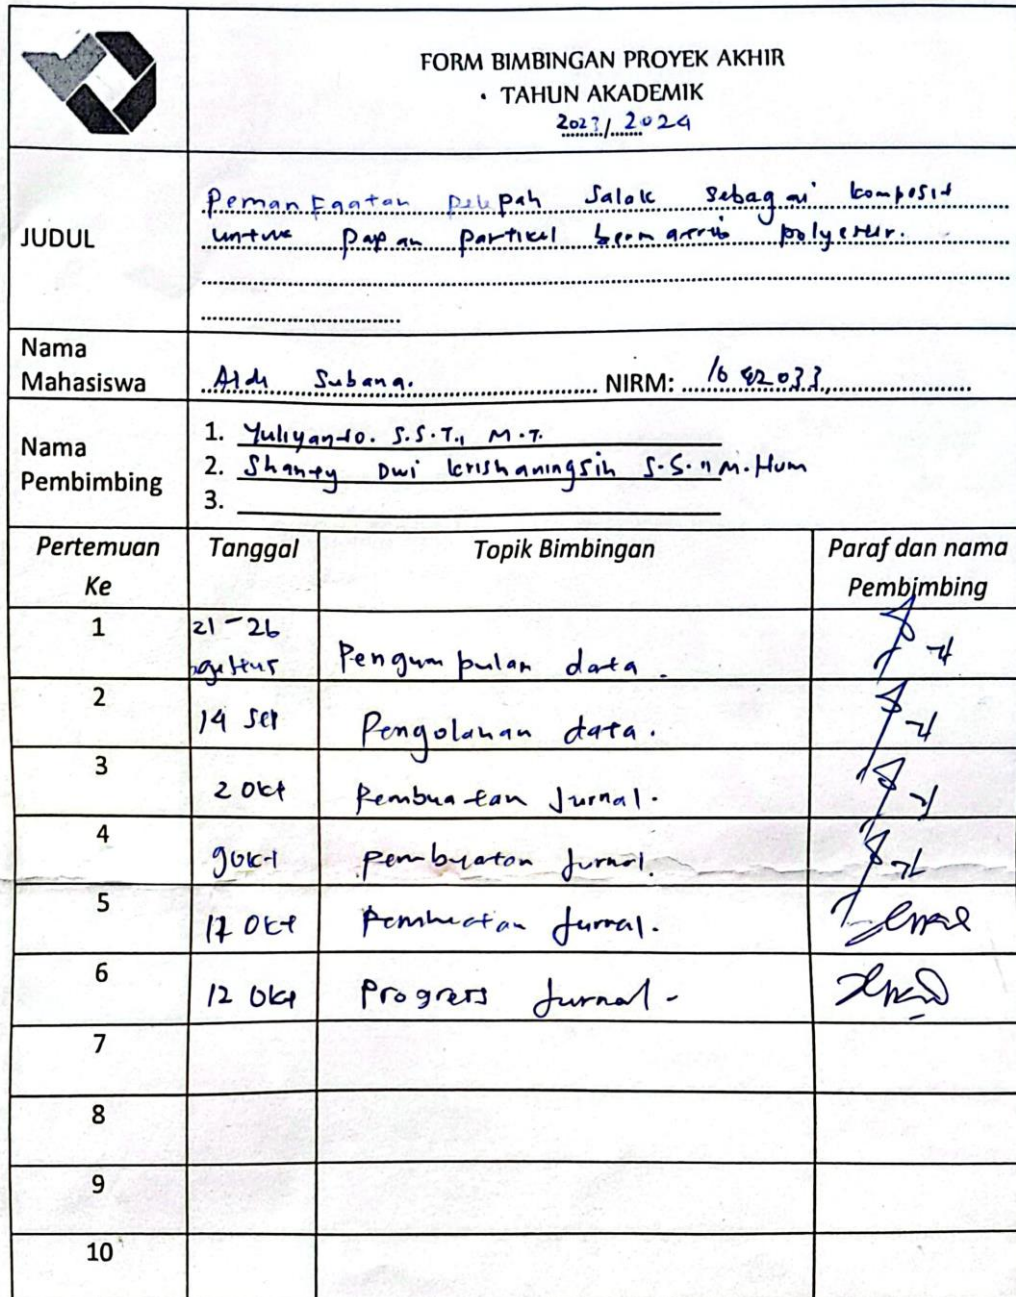 FORM BIMBINGAN PROYEK AKHIR
TAHUN AKADEMIK
2023/2024
JUDUL
Pemanfaatan pelepah Salak sebagai komposit
untuk papan partikel bermatriks polyester.
Nama Mahasiswa
Aldi Subana. NIRM:
Nama Pembimbing
1. Yuliyanto. S.S.T., M.T.
2. Shanty Dwi krishaningsih S.S., M.Hum
3.
Pertemuan Ke Tanggal Topik Bimbingan Paraf dan nama Pembimbing
1 21-26 agustus Pengumpulan data.
2 14 Sep Pengolahan data.
3 2 Okt Pembuatan Jurnal.
4 9 Okt pembuatan Jurnal.
5 Okt Pembuatan Jurnal.
6 12 Okt Progress Jurnal -
7
8
9
10